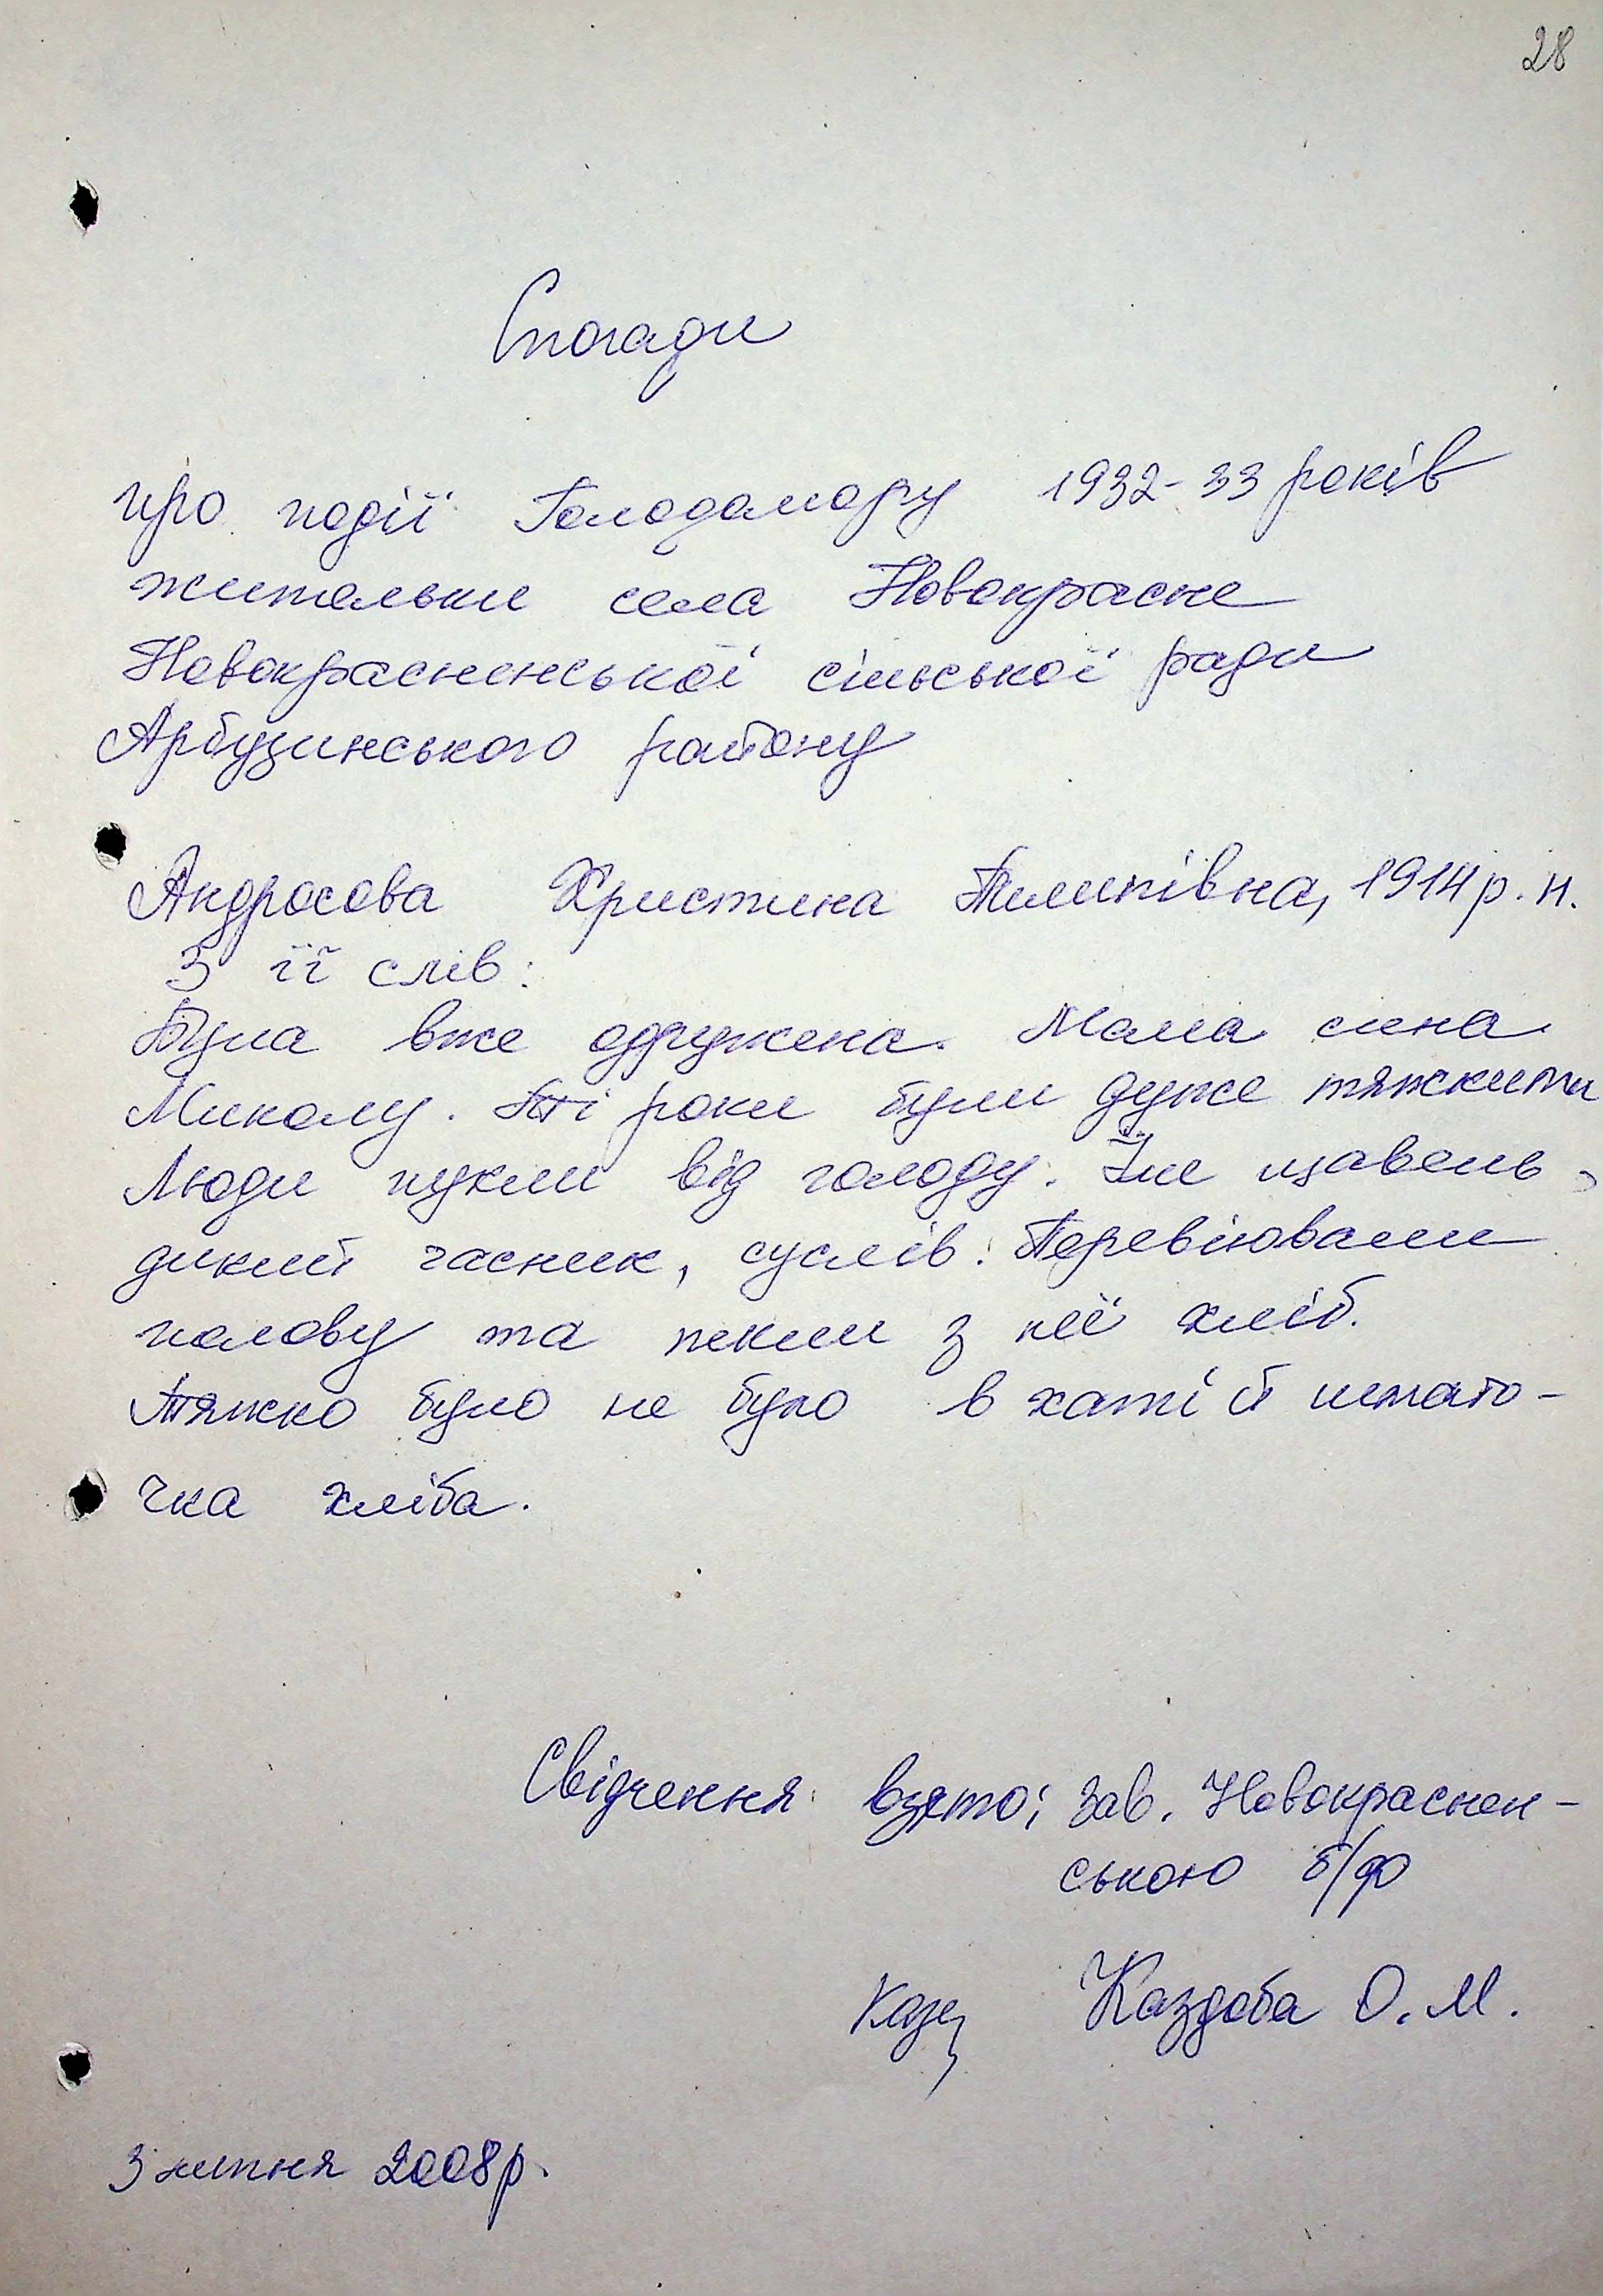 28
Спогади
про події Голодомору 1932-33 років
жительки села Новокрасне
Новокрасненської сільської ради
Арбузинського району
Андросова Христина Пилипівна, 1914 р. н.
З її слів:
Була вже одружена. Мала сина
Миколу. Ті роки були дуже тяжкими
Люди пухли від голоду. Їли щавель,
дикий часник, суслів. Перевіювали
полову та пекли з неї хліб.
Тяжко було не було в хаті й шмато-
чка хліба.
Свідчення взято: зав. Новокраснен-
ською б/ф
Каздоба О. М.
3 липня 2008р.